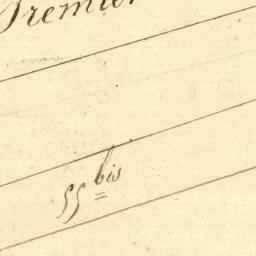 Premier
55 bis